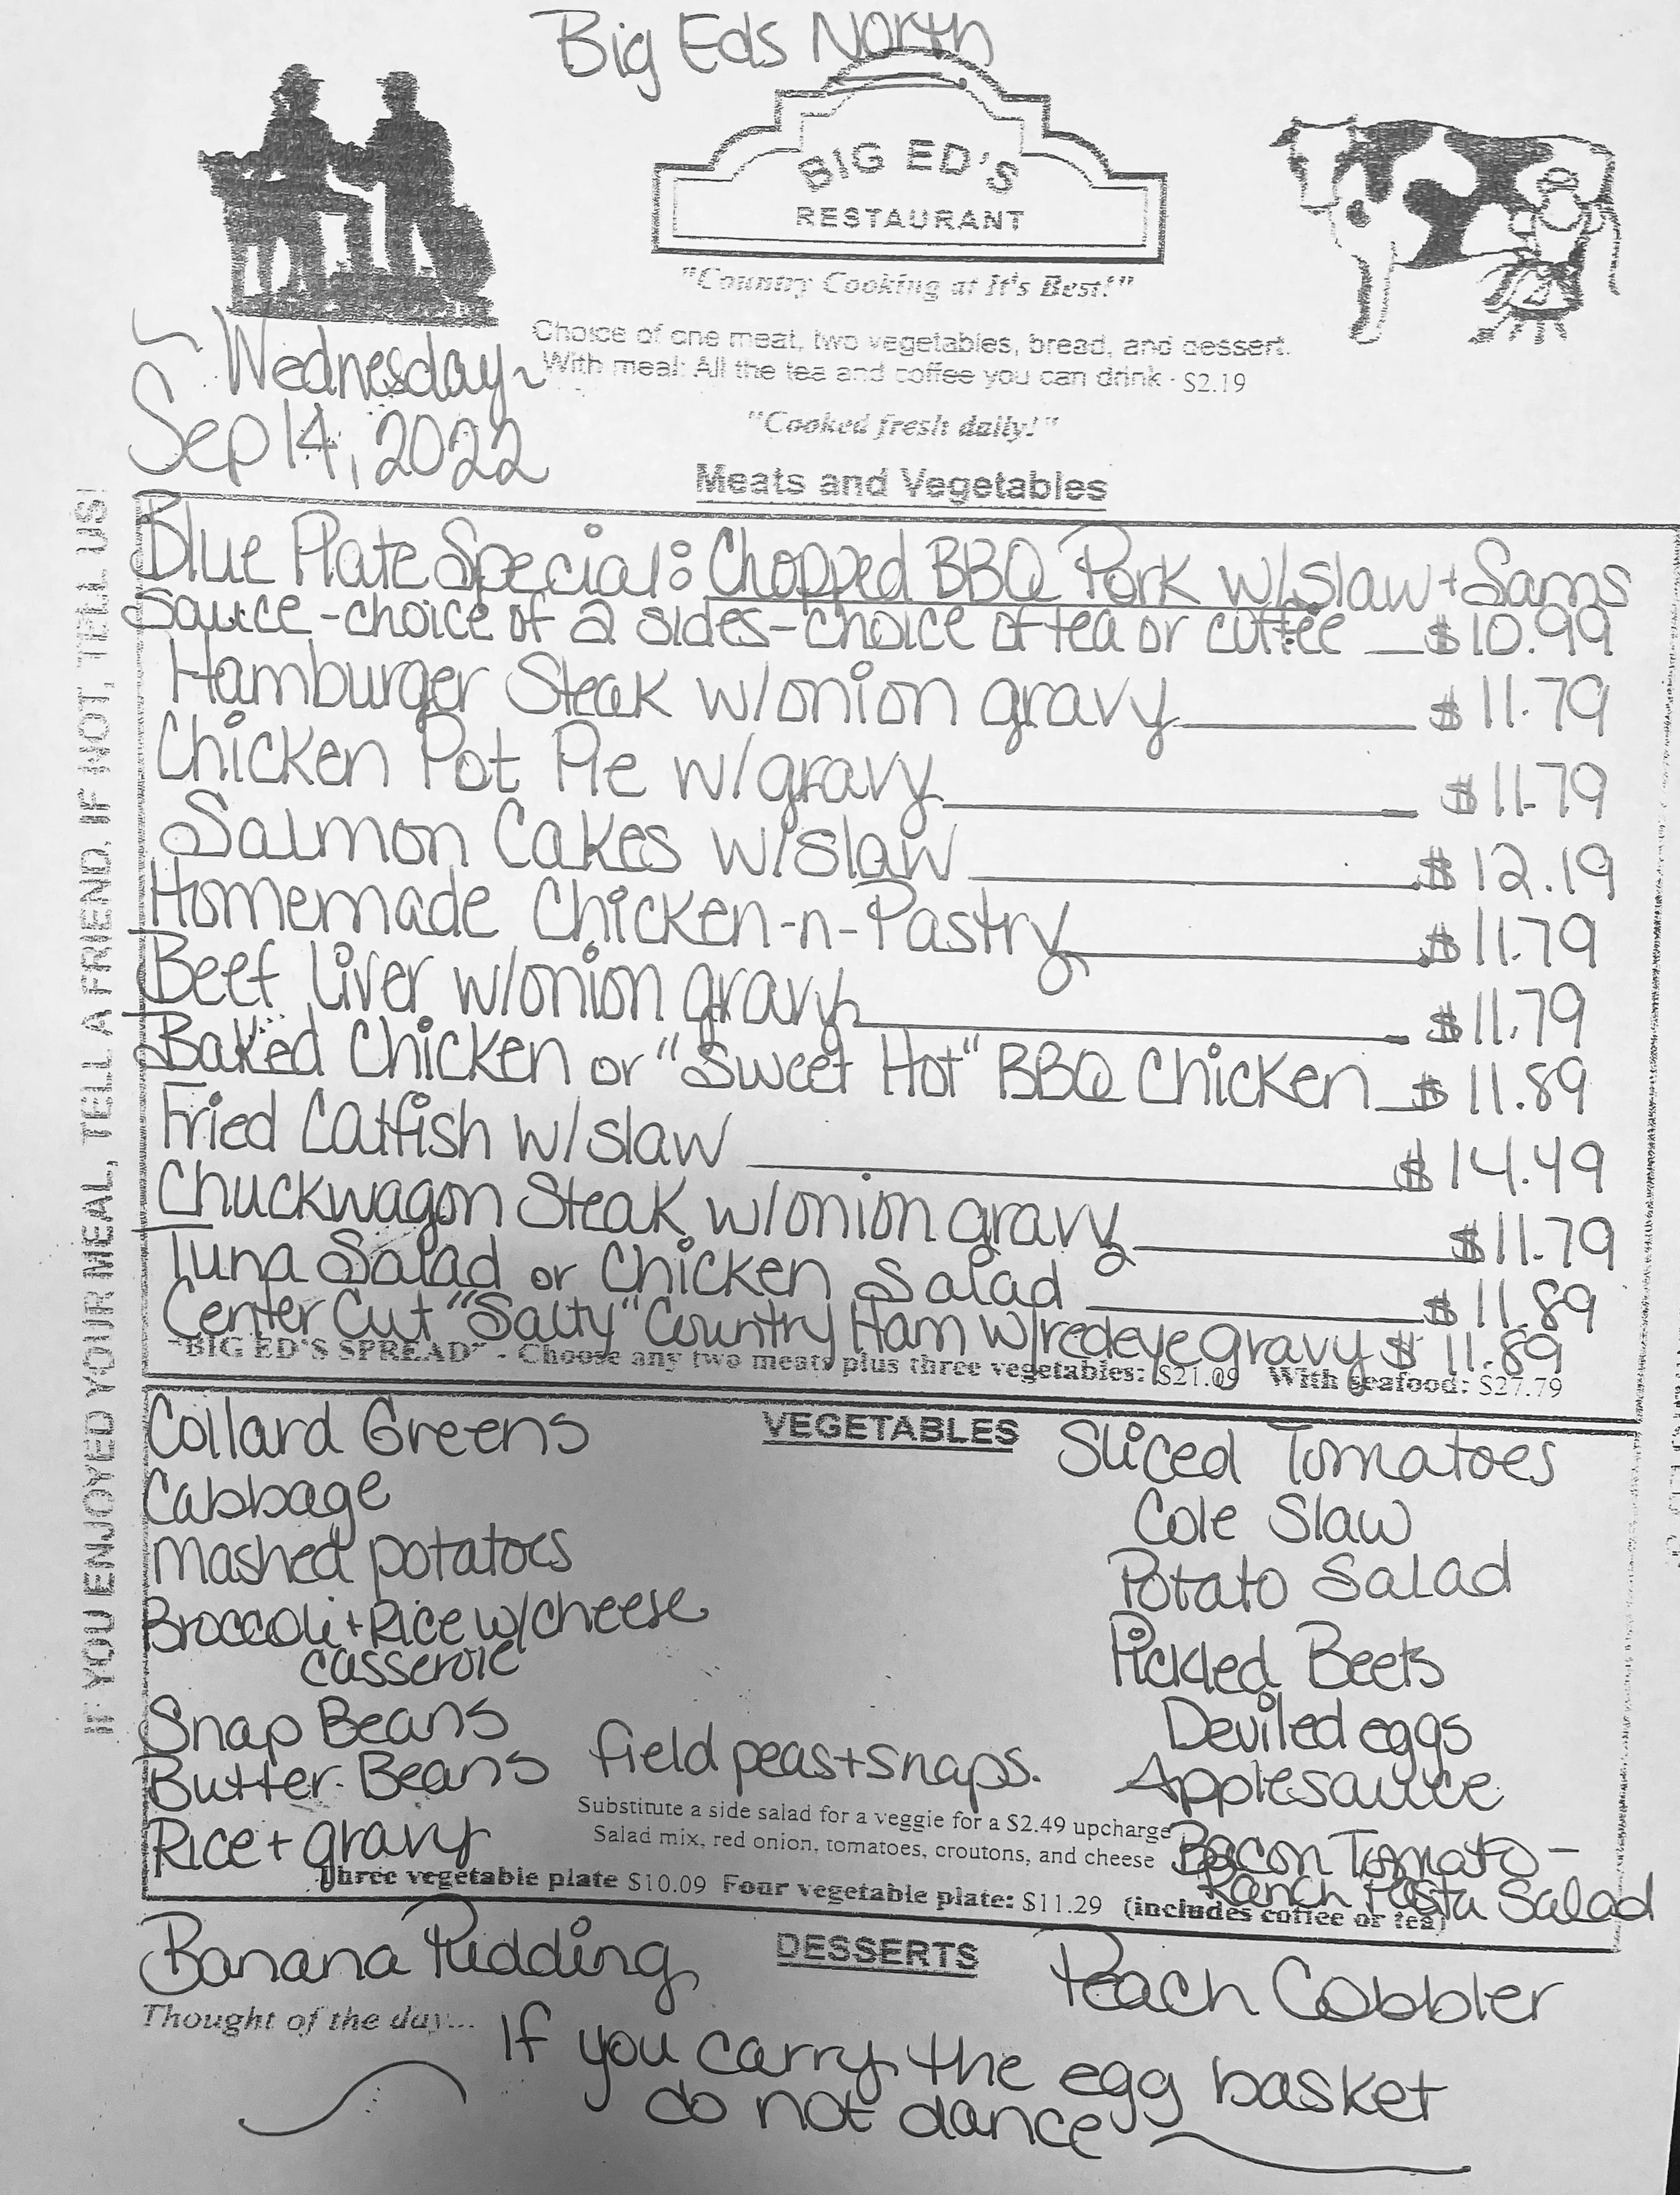 Big Eds North
BIG ED'S
RESTAURANT
"Country Cooking at It's Best!"
Choice of one meat, two vegetables, bread, and dessert.
With meal: All the tea and coffee you can drink - $2.19
Wednesday
Sep 14, 2022
"Cooked fresh daily!"
Meats and Vegetables
IF YOU ENJOYED YOUR MEAL, TELL A FRIEND, IF NOT, TELL US!
Blue Plate Special: Chopped BBQ Pork w/slaw + Sams
Sauce - choice of 2 sides - choice of tea or coffee $10.99
Hamburger Steak w/onion gravy $11.79
Chicken Pot Pie w/gravy $11.79
Salmon Cakes w/slaw $12.19
Homemade Chicken-n-Pastry $11.79
Beef Liver w/onion gravy $11.79
Baked Chicken or "Sweet Hot" BBQ Chicken $11.89
Fried Catfish w/slaw $14.49
Chuckwagon Steak w/onion gravy $11.79
Tuna Salad or Chicken Salad $11.89
Center Cut "Salty" Country Ham w/redeye gravy $11.89
"BIG ED'S SPREAD" - Choose any two meats plus three vegetables: $21.09 With seafood: $27.79
VEGETABLES
Collard Greens
Cabbage
Mashed potatoes
Broccoli + Rice w/cheese
casserole
Snap Beans
Butter Beans
Rice + gravy
field peas + snaps.
Sliced Tomatoes
Cole Slaw
Potato Salad
Pickled Beets
Deviled eggs
Applesauce
Bacon Tomato -
Ranch Pasta Salad
Substitute a side salad for a veggie for a $2.49 upcharge
Salad mix, red onion, tomatoes, croutons, and cheese
Three vegetable plate $10.09 Four vegetable plate: $11.29 (includes coffee or tea)
DESSERTS
Banana Pudding
Peach Cobbler
Thought of the day...
If you carry the egg basket
do not dance